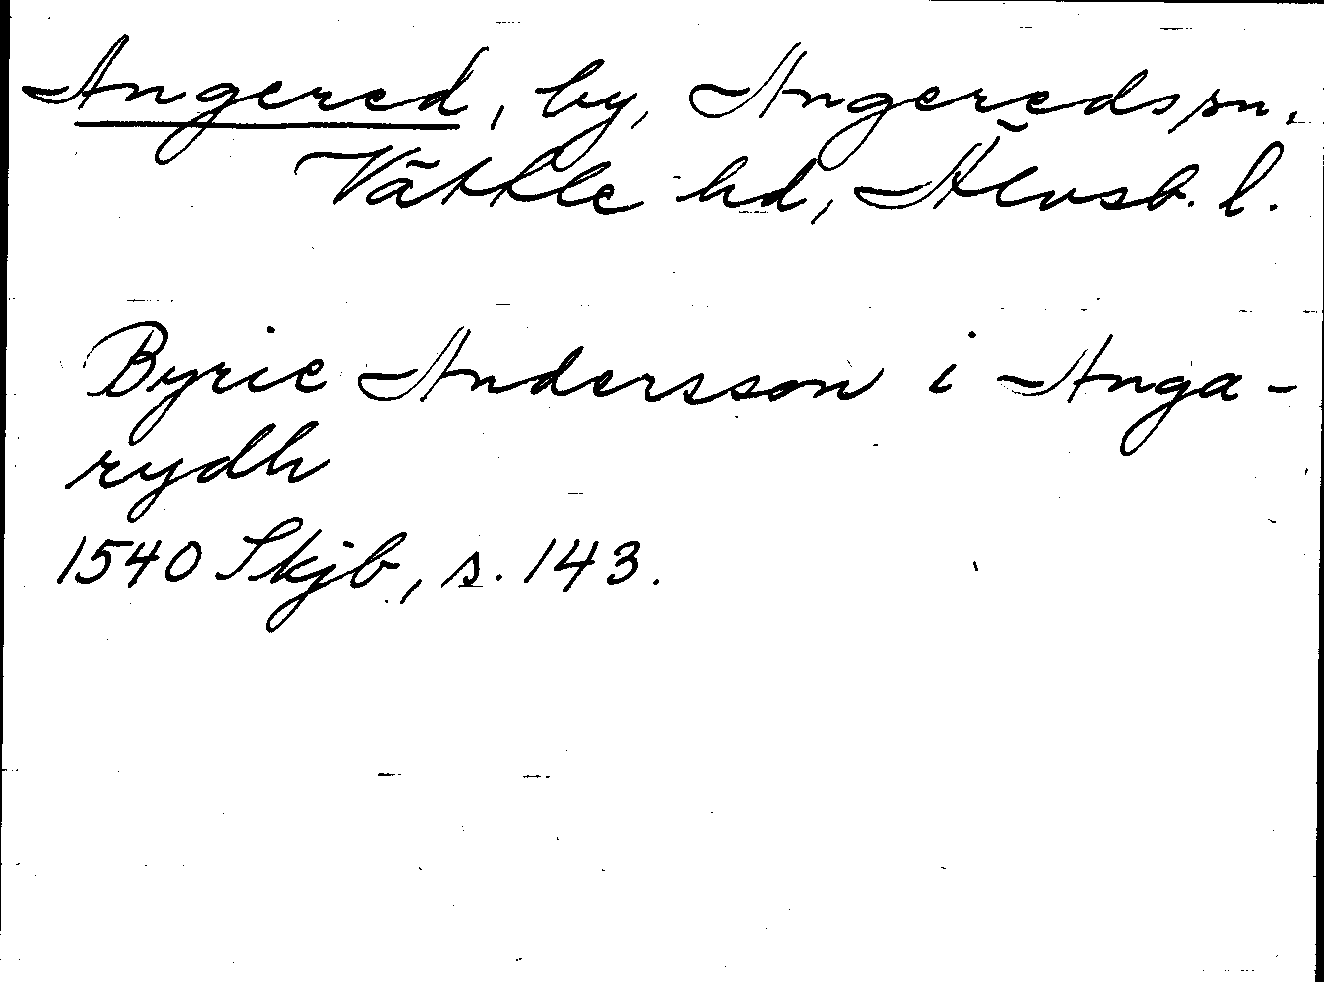 Angered, by, Angereds sn.
Vättle hd, Älvsb. l.
Byrie Andersson i Anga-
rydh
1540 Skjb, s. 143.